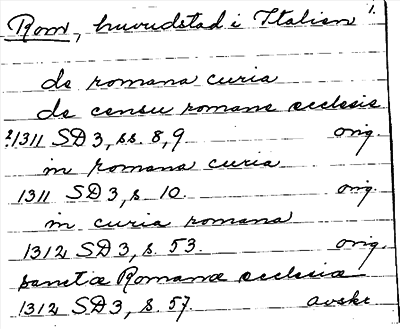 Rom, huvudstad i Italien 1.
de romana curia
de censu romane ecclesie
?1311 SD 3, ss. 8, 9 orig.
in romana curia
1311 SD 3, s. 10. orig.
in curia romana
1312 SD 3, s. 53. orig.
sancta Romana ecclesia
1312 SD 3, s. 57. avskr